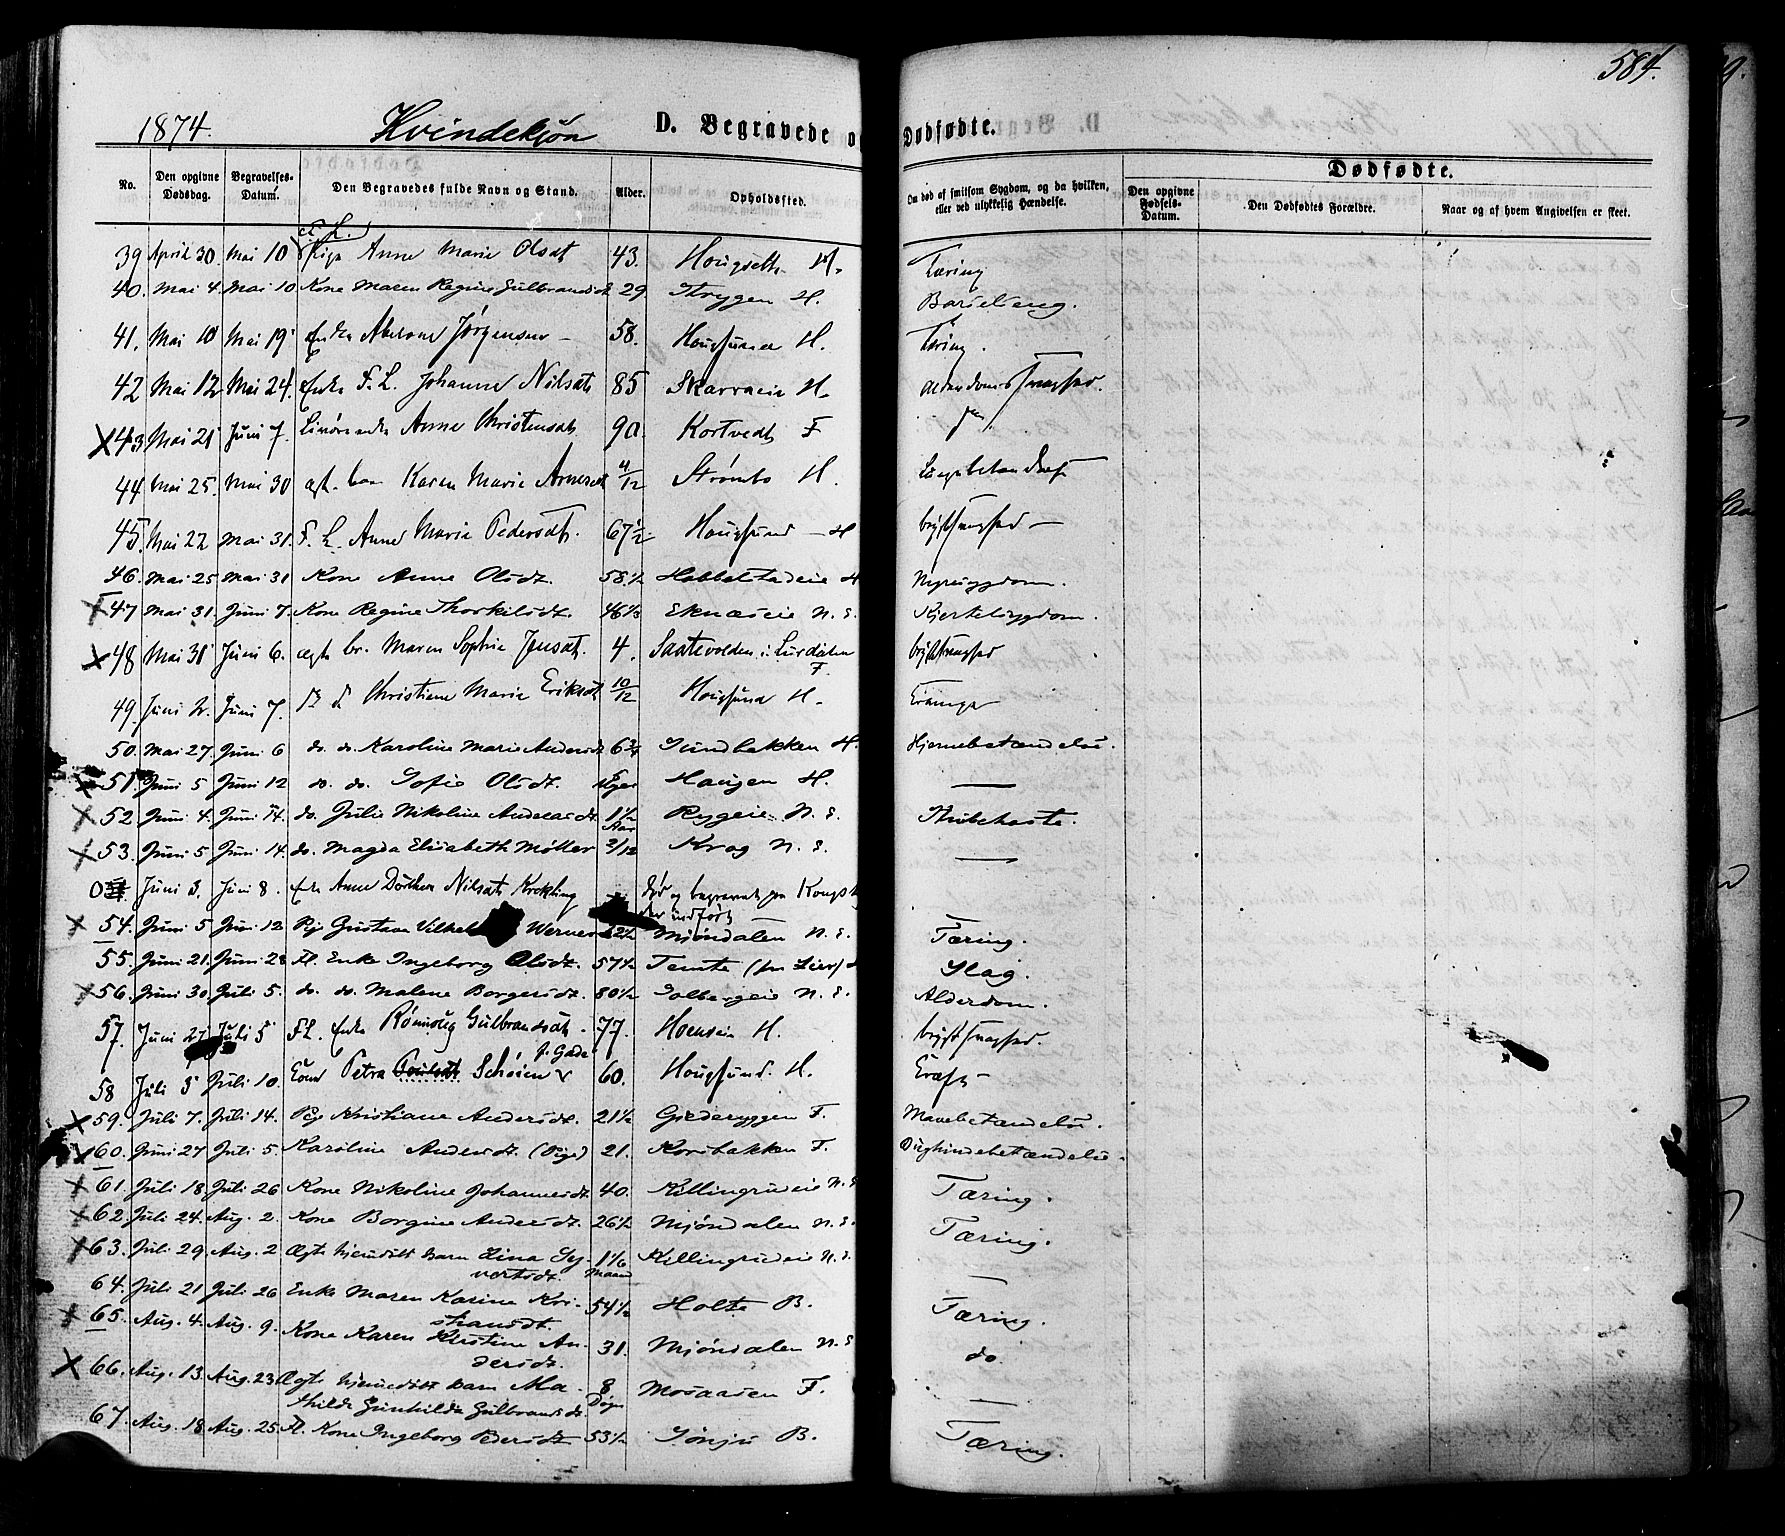 584.
1874. Kvindekjøn D. Begravede og Dødfødte.
No. Den opgivne Dødsdag. Begravelses-Datum. Den Begravedes fulde Navn og Stand. Alder. Opholdssted. Om død af smitsom Sygdom, og da hvilken, eller ved ulykkelig Hændelse. Dødfødte.
Den opgivne Fødsels-Datum. Den Dødfødtes Forældre. Naar og af hvem Angivelsen er skeet.
39 April 30. Mai 10 Pige Anne Marie Olsdt 43. H. Tæring
40. Mai 4. Mai 10 Kone Maren Regine Gulbrandsdt 29 H. Barselseng.
41. Mai 10 Mai 19 Enke Jørgensen 58. Hougsund H. Tæring.
42 Mai 12 Mai 24. Enke F. L. Johanne Nilsdt 85 Skarraeie H. Alderdomssvaghed.
X 43 Mai 21 Juni 7. Anne Christensdt 90. Kortvedt F
44 Mai 25. Mai 30 ægt. barn Karen Marie 4/12 Strømbo H.
45. Mai 22 Mai 31. F. L. Anne Marie Pedersdt. 67½ Hougsund H brystsvaghed
46. Mai 25 Mai 31 Kone Anne Olsdt. 58½ Hobbelstadeie H Nyresygdom.
X 47 Mai 31. Juni 7. Kone Regine Thorkilsdt. 46½ Eknæseie N. E. Kjertelsygdom.
X 48 Mai 31 Juni 6. ægte br. Maren Sophie Jensdt. 4. Saatevolden i Lurdalen F. brystsvaghed
49. Juni 2. Juni 7. Christiane Marie Eriksdt 10/12 Hougsund H. Krampe
50. Mai 27. Juni 6 do. do. Karoline Marie Andersdt 6¾ Sundbakken H. Hjernebetændelse.
X 51. Juni 5 Juni 12 do. do. Sofie Olsdt. Haugen H. —
X 52. Juni 4. Juni 14. do. Julie Nikoline Andersdt. 1½ Aar Rygeie N. E. Strubehoste.
X 53. Juni 5 Juni 14. do. Magda Elisabeth Møller 2/12 Krog N. E. —
Juni 3. Juni 8. Enke Anne Dorthea Nilsdt Krekling død og begravet paa Kongsb. der indført
X 54. Juni 5 Juni 12 Pige Gustava Werner 22½ Mjøndalen N. E. Tæring.
55. Juni 21. Juni 28 Fl. Enke Ingeborg Olsdt. 57½ Temte (fra Lier) Slag.
X 56. Juni 30. Juli 5. do. do. Malene Borgersdt. 80½ Solbergeie N. E. Alderdom.
57. Juni 27 Juli 5 F. L. Enke Rønnoug Gulbrandsdt. 77. Hoenseie H. brystsvaghed.
58 Juli 3 Juli 10. Petra Schøien f. Gade 60. Hougsund. H. Kræft
X 59. Juli 7. Juli 14. Pige Kristiane Andersdt. 21½ Gjederyggen F. Mavebetændelse.
X 60. Juni 27 Juli 5. Karoline Andersdt. (Pige) 21. Korsbakken F. Bughindebetændelse.
X 61. Juli 18 Juli 26 Kone Nikoline Johannesdt. 40. Killingrudeie N. E. Tæring.
X 62. Juli 24. Aug. 2. Kone Borgine Andersdt. 26½ Mjøndalen N. E. Tæring.
X 63. Juli 29. Aug. 2 Ægte hjemdøbt barn Lina Syvertsdt. 1½ Maan Killingrudeie N. E. —
64. Juli 21 Juli 26 Enke Maren Karine Kristiansdt. 54½ Holte B. Tæring.
X 65. Aug. 4. Aug. 9. Kone Karen Kirstine Andersdt. 31. Mjøndalen N. E do.
X 66. Aug. 13. Aug. 23. Ægte hjemdøbt barn Mathilde Gunhilda Gulbrandsdt. 8 Døgn Mosaasen F. —
67. Aug. 18 Aug. 25. Fl. Kone Ingeborg Pedersdt 53½ Sønju B. Tæring.